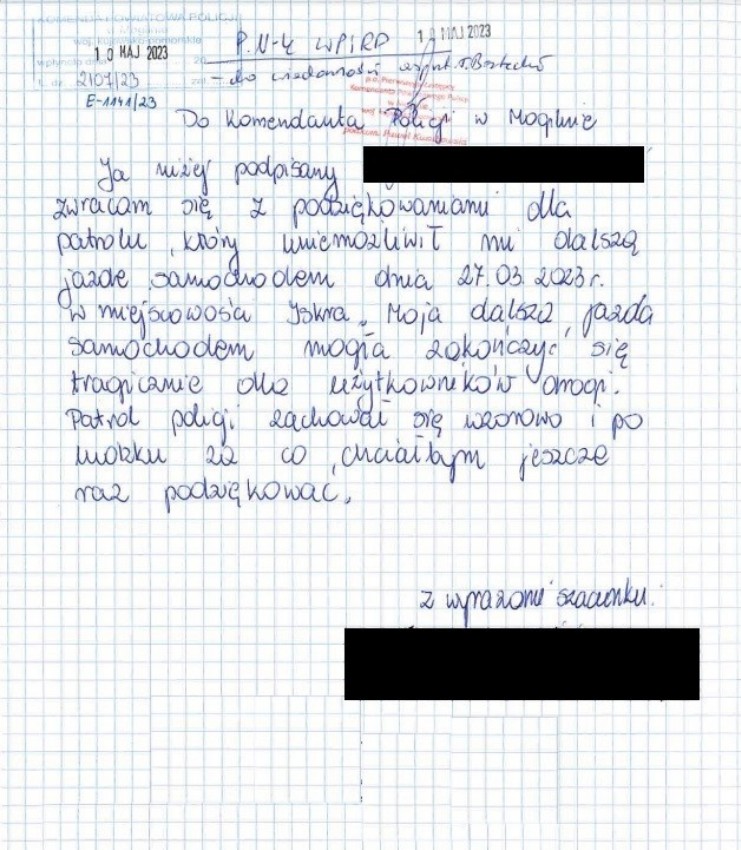 KOMENDA POWIATOWA POLICJI
w Mogilnie
woj. kujawsko-pomorskie
10 MAJ 2023
wpłynęło dnia 20
L. dz. 2107/23 zał.
E-1141/23
P. N-k WPiRD
12 MAJ 2023
- do wiadomości asp. szt.
Komendanta Powiatowego Policji
w Mogilnie
Do Komendanta Policji w Mogilnie
Ja niżej podpisany
zwracam się z podziękowaniami dla
patrolu, który uniemożliwił mi dalszą
jazdę samochodem dnia 27.03.2023r.
w miejscowości Iskra. Moja dalsza jazda
samochodem mogła zakończyć się
tragicznie dla użytkowników drogi.
Patrol policji zachował się wzorowo i po
ludzku za co, chciałbym jeszcze
raz podziękować.
z wyrazami szacunku.